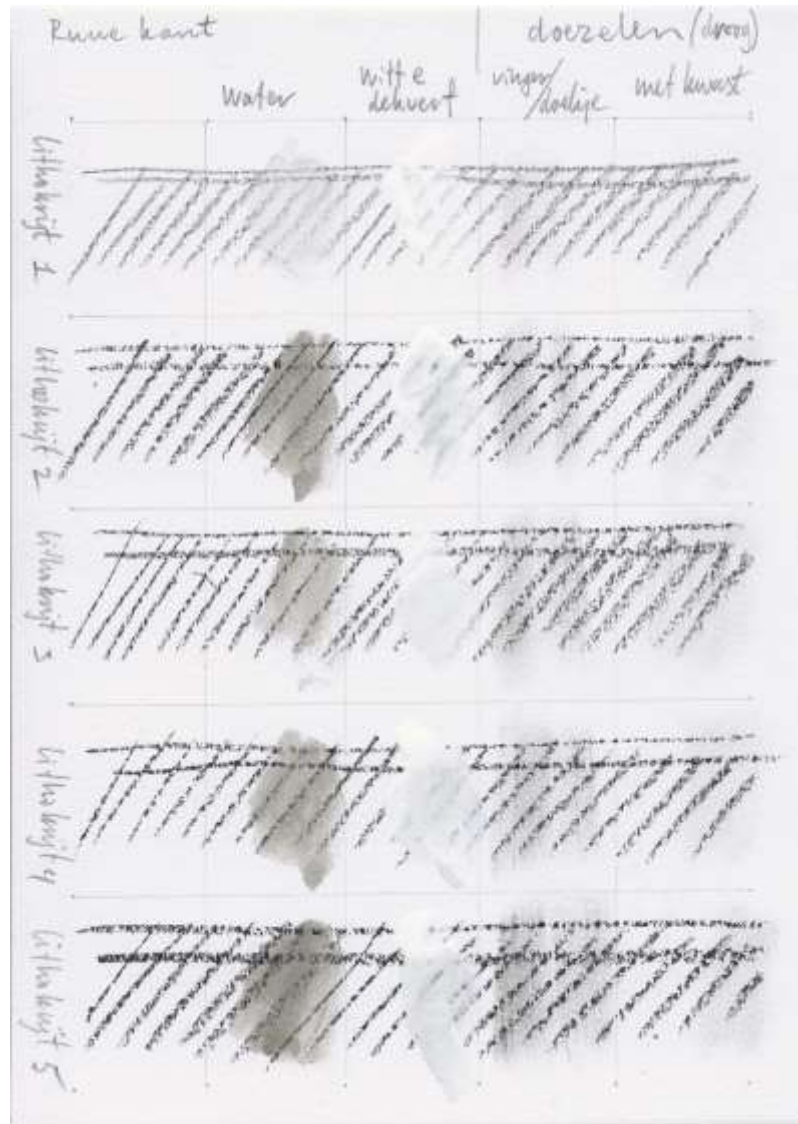 Ruwe kant
doezelen (droog)
water
witte
dekverf
vinger/
doekje
met kwast
Lithokrijt 1
Lithokrijt 2
Lithokrijt 3
Lithokrijt 4
Lithokrijt 5